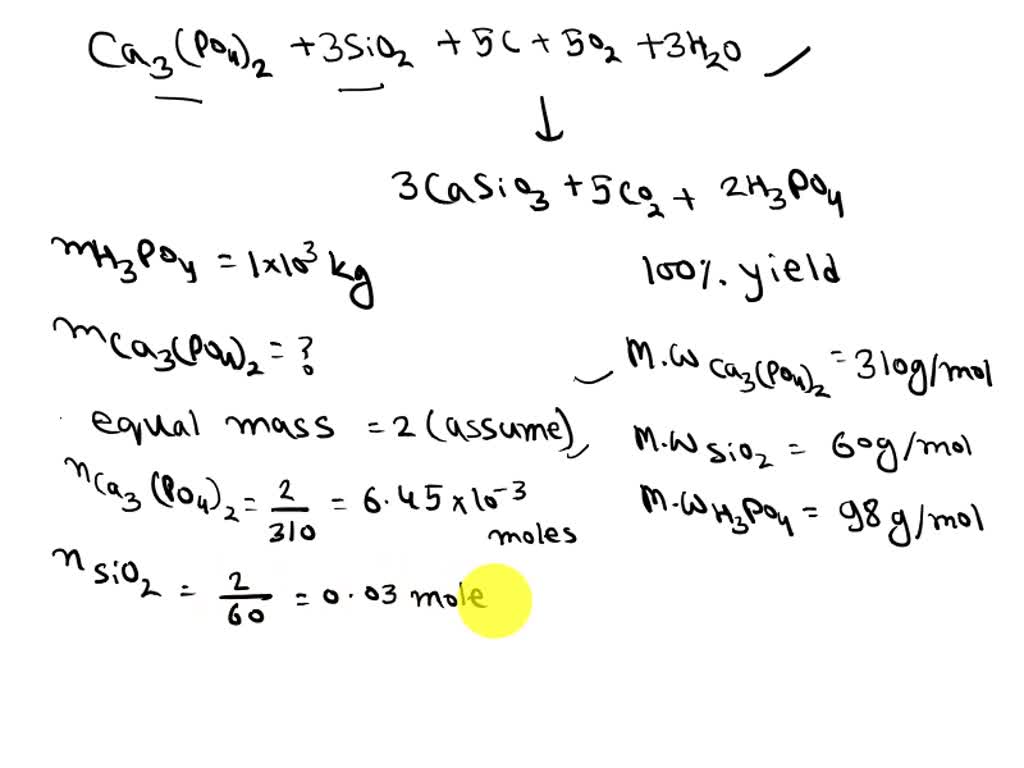 Ca3(PO4)2 + 3SiO2 + 5C + 5O2 + 3H2O
↓
3CaSiO3 + 5CO2 + 2H3PO4
mH3PO4 = 1×10³ kg
100% yield
mCa3(PO4)2 = ?
M.W Ca3(PO4)2 = 310g/mol
equal mass = 2 (assume),
M.W SiO2 = 60g/mol
nCa3(PO4)2 = 2/310 = 6.45×10⁻³ moles
M.W H3PO4 = 98g/mol
nSiO2 = 2/60 = 0.03 mole